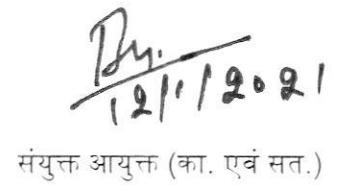 12/1/2021
संयुक्त आयुक्त (का. एवं सत.)